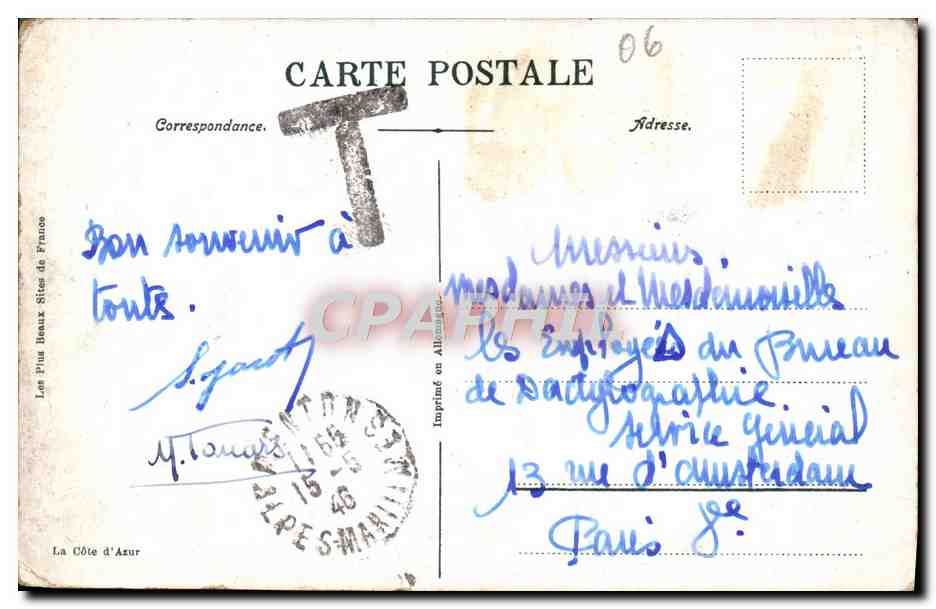 06
CARTE POSTALE
T
Correspondance.
Adresse.
Bon souvenir à
touts.
M. Touars
MENTON
15 -5
46
ALPES-MARITIMES
Messieurs,
Mesdames et Mesdemoiselles
les Employés du Bureau
de Dactylographie
Service général
13 rue d'Amsterdam
Paris 8e
Les Plus Beaux Sites de France
Imprimé en Allemagne.
La Côte d'Azur
CPARHIL